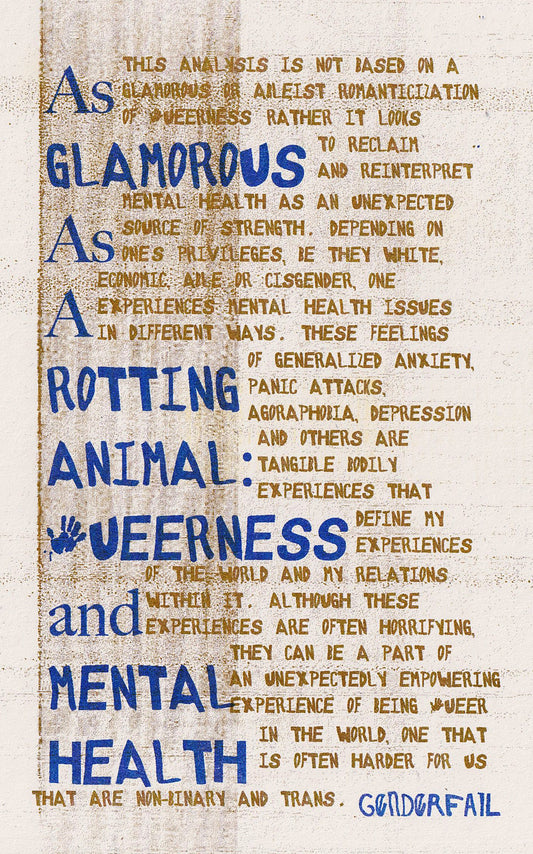 As
GLAMOROUS
As
A
ROTTING
ANIMAL:
UEERNESS
and
MENTAL
HEALTH
THIS ANALYSIS IS NOT BASED ON A
GLAMOROUS OR ABLEIST ROMANTICIZATION
OF UEERNESS RATHER IT LOOKS
TO RECLAIM
AND REINTERPRET
MENTAL HEALTH AS AN UNEXPECTED
SOURCE OF STRENGTH. DEPENDING ON
ONE'S PRIVILEGES, BE THEY WHITE,
ECONOMIC, ABLE OR CISGENDER, ONE
EXPERIENCES MENTAL HEALTH ISSUES
IN DIFFERENT WAYS. THESE FEELINGS
OF GENERALIZED ANXIETY,
PANIC ATTACKS,
AGORAPHOBIA, DEPRESSION
AND OTHERS ARE
TANGIBLE BODILY
EXPERIENCES THAT
DEFINE MY
EXPERIENCES
OF THE WORLD AND MY RELATIONS
WITHIN IT. ALTHOUGH THESE
EXPERIENCES ARE OFTEN HORRIFYING,
THEY CAN BE A PART OF
AN UNEXPECTEDLY EMPOWERING
EXPERIENCE OF BEING UEER
IN THE WORLD, ONE THAT
IS OFTEN HARDER FOR US
THAT ARE NON-BINARY AND TRANS.
GENDERFAIL